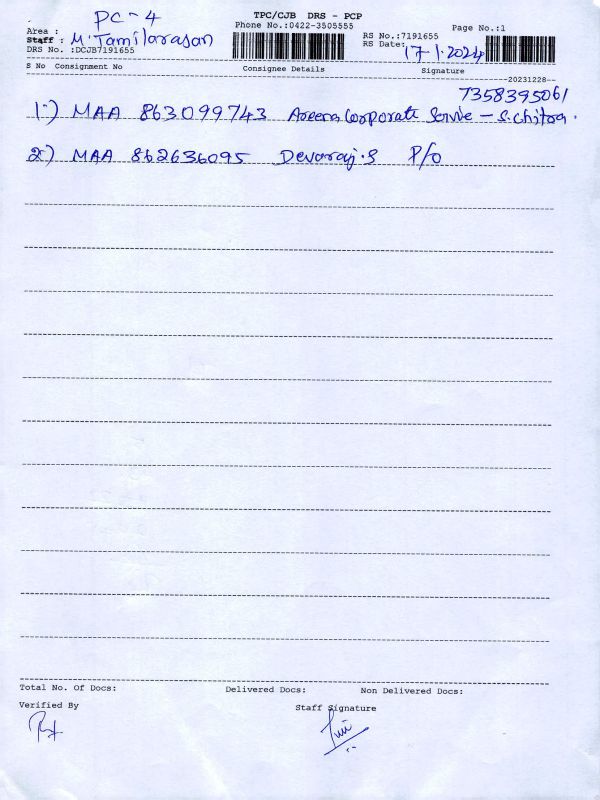 TPC/CJB DRS - PCP
Phone No.:0422-3505555
Page No.:1
Area : PC-4
Staff : M.Tamilarasan
DRS No. :DCJB7191655
RS No.:7191655
RS Date: 17-1-2024
S No Consignment No Consignee Details Signature
--20231228--
7358395061
1.) MAA 863099743 Areena Corporate Servie - S.Chitra.
2) MAA 862636095 Devaraj.S P/o
Total No. Of Docs: Delivered Docs: Non Delivered Docs:
Verified By Staff Signature